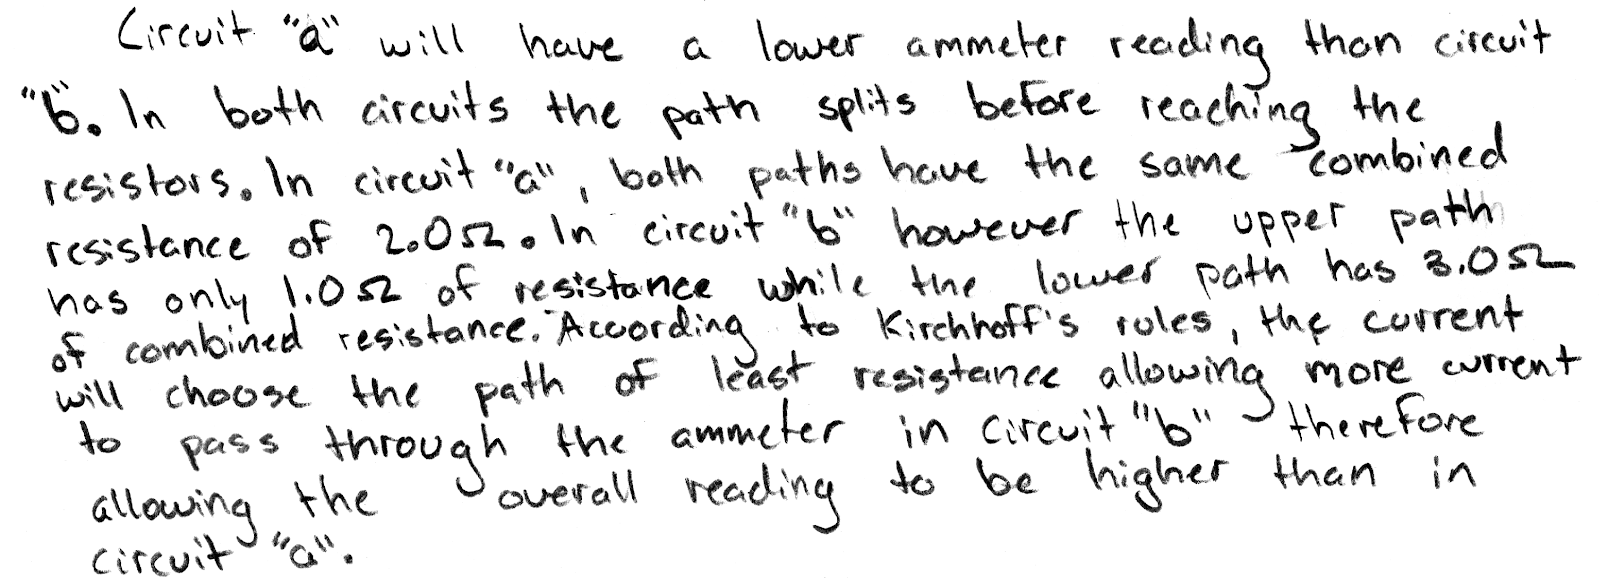 Circuit "a" will have a lower ammeter reading than circuit
"b". In both circuits the path splits before reaching the
resistors. In circuit "a", both paths have the same combined
resistance of 2.0Ω. In circuit "b" however the upper path
has only 1.0Ω of resistance while the lower path has 3.0Ω
of combined resistance. According to Kirchhoff's rules, the current
will choose the path of least resistance allowing more current
to pass through the ammeter in circuit "b" therefore
allowing the overall reading to be higher than in
circuit "a".